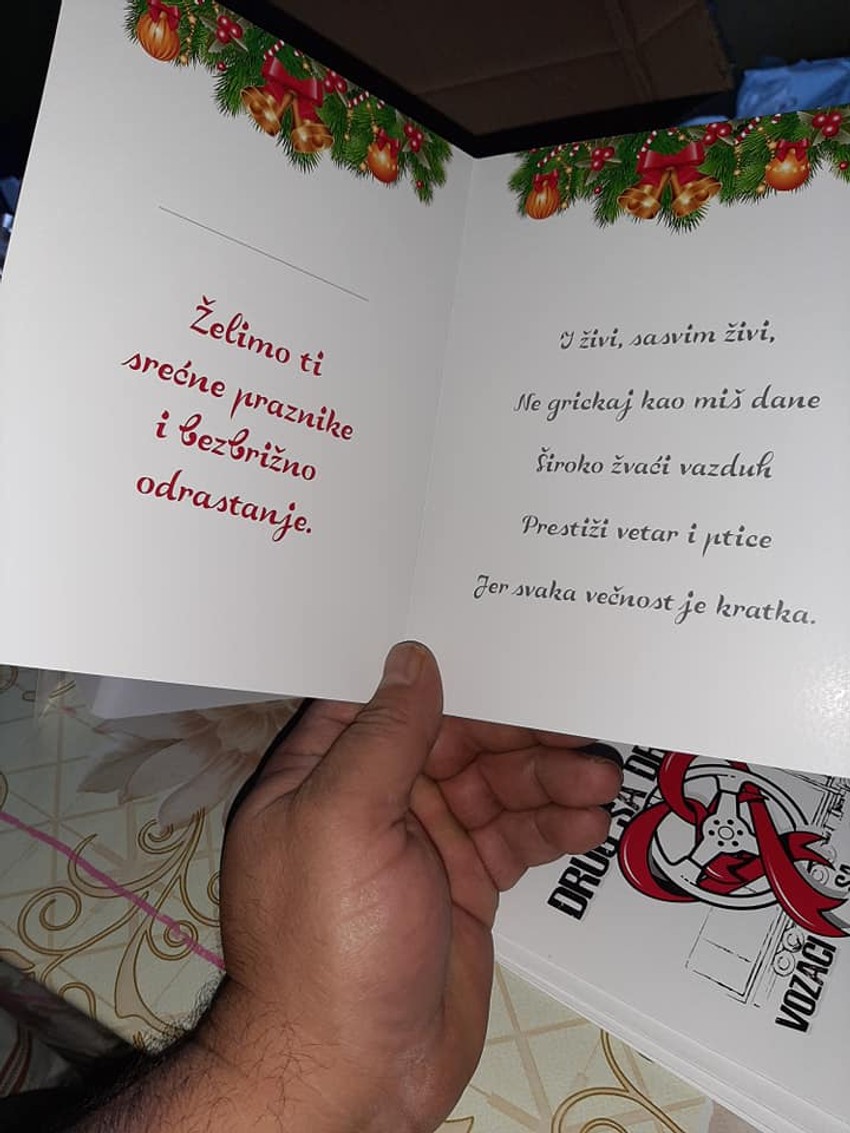 Želimo ti
srećne praznike
i bezbrižno
odrastanje.
I živi, sasvim živi,
Ne grickaj kao miš dane
Široko žvaći vazduh
Prestiži vetar i ptice
Jer svaka večnost je kratka.
DRUG SA DR
VOZAČI
SA